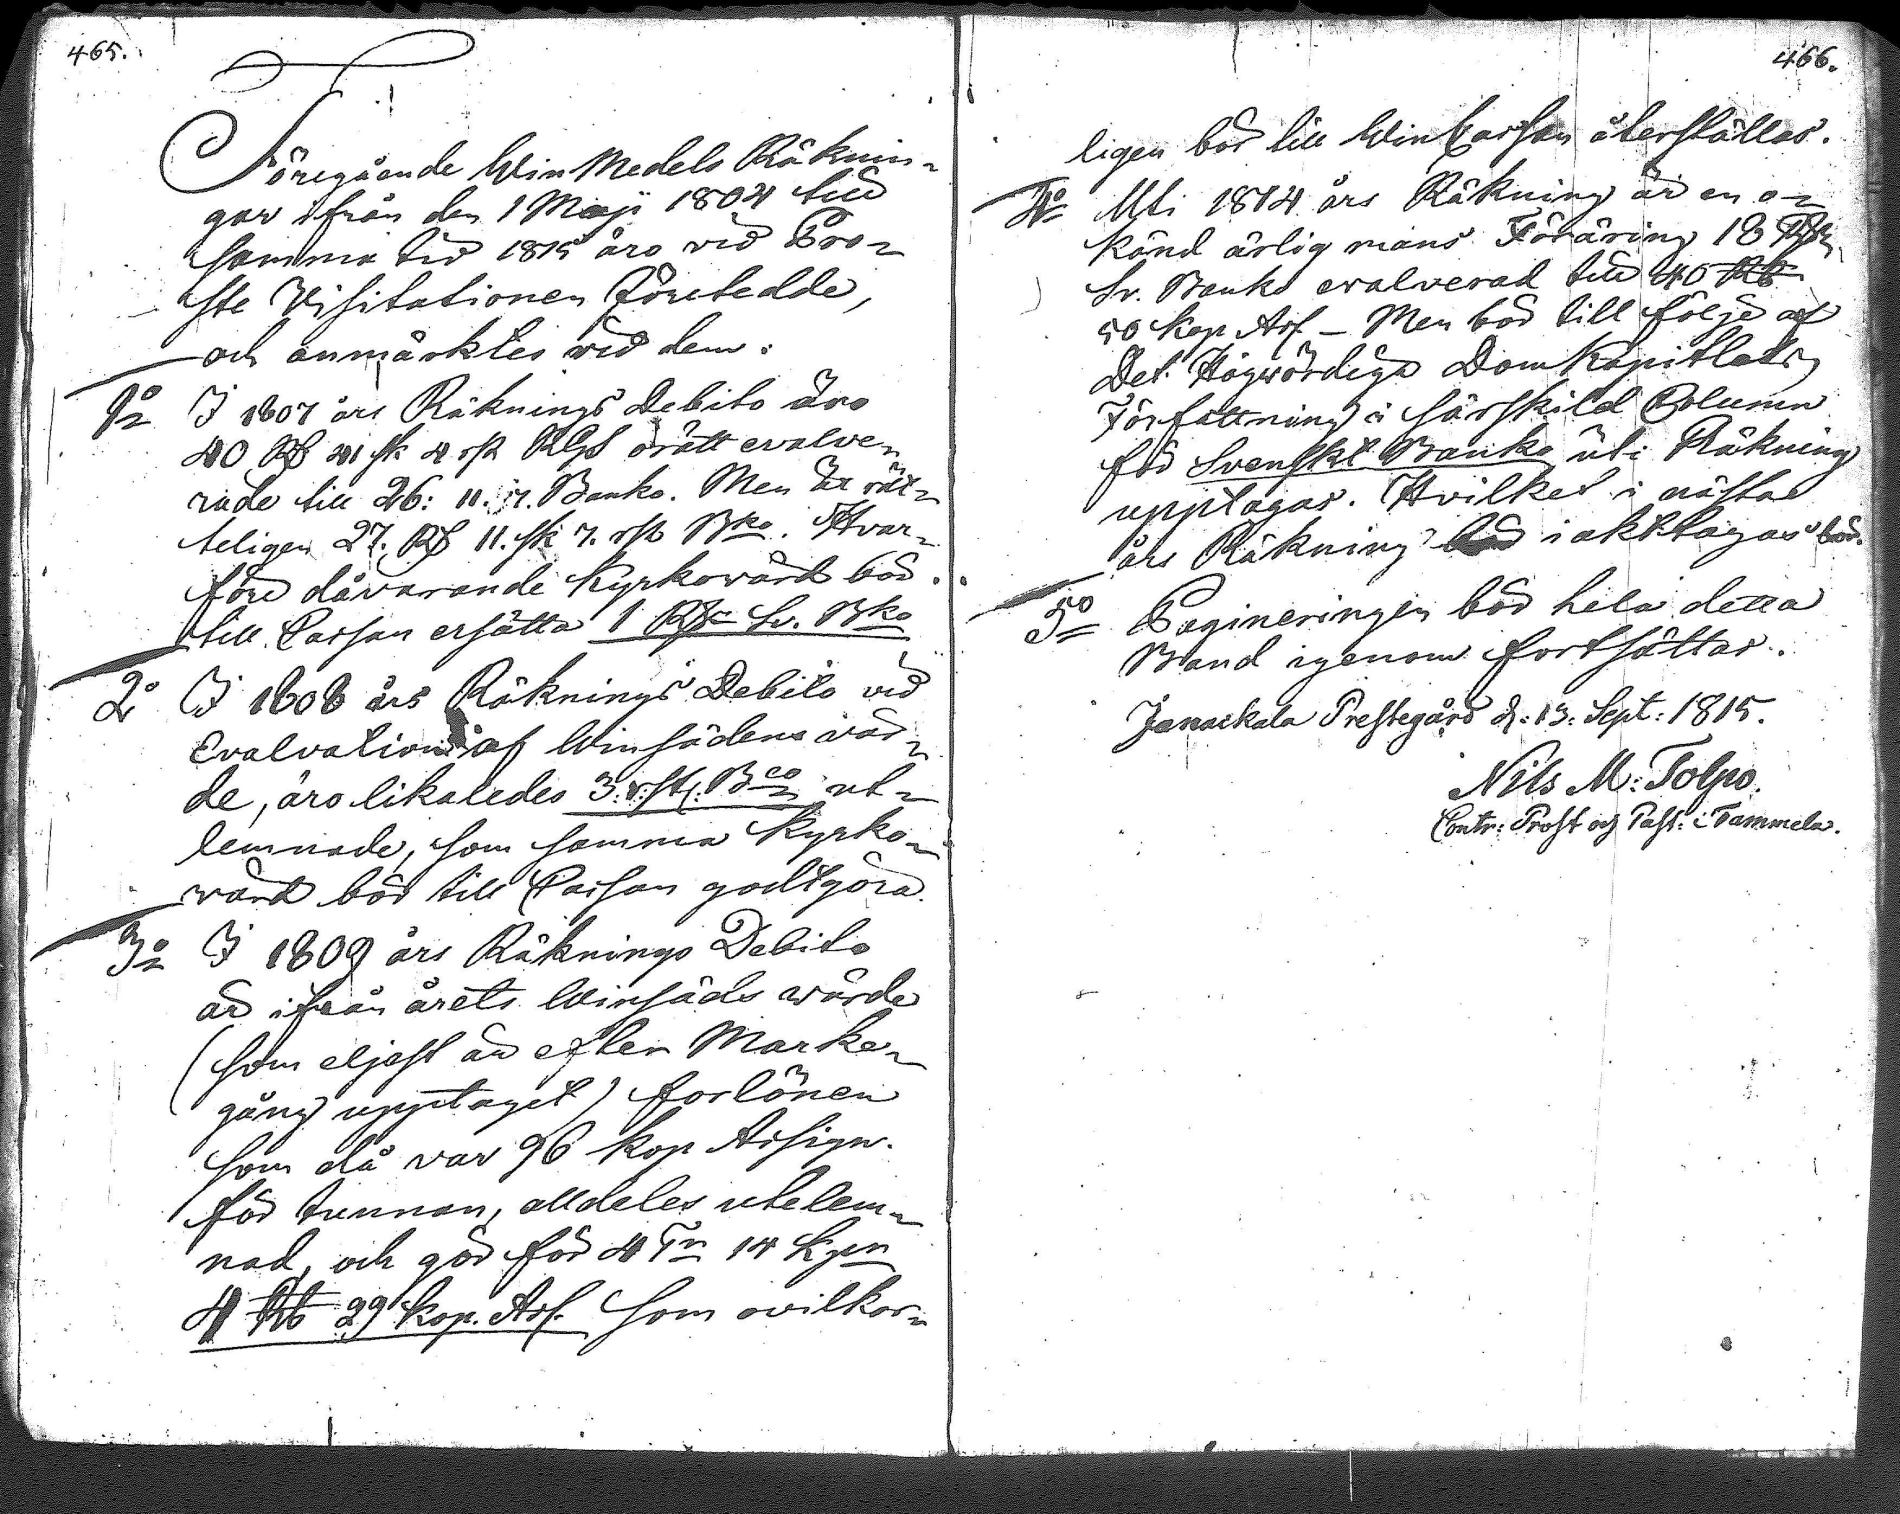 465.
Föregående Win Medels Räknin-
gar ifrån den 1 Maji 1804 till
samma tid 1815 äro vid Pro-
ste Visitationen företedde,
och anmärktes vid dem:
1o I 1807 års Räknings Debito äro
40 Rd 41 sk 4 rst Rgs orätt evalve-
rade till 26: 11. 7. Banko. Men är rät-
teligen 27. Rd 11. sk 7. rst Bko. Hvar-
före dåvarande Kyrkovärd bör
till Cassan ersätta 1 Rd Sv. Bko
2o I 1808 års Räknings Debito vid
Evalvation af Winsädens vär-
de, äro likaledes 3. rst. Bco ut-
lemnade, som samma Kyrko-
wärd bör till Cassan godtgöra.
3o I 1809 års Räknings Debito
är ifrån årets Winsäds wärde
(som eljest är efter Marke-
gång upptaget) forlönen
som då var 96 kop Assign.
för tunnan, alldeles utelem-
nad, och gör för 4 Tn 14 kpr
4 Rb 29 kop. Ass. som ovilkor-
466.
ligen bör till Win Cassan återställas.
4o Uti 1814 års Räkning är en o-
känd ärlig mans Föräring 18 Rd
Sv. Banko evalverad till 40 Rb
50 kop Ass - Men bör till följe af
Det Högwördiga DomKapitlets
Författning i särskild Columm
för Svenskt Banko uti Räkning
upptagas. Hvilket i nästa
års Räkning iakttagas bör.
5o Pagineringen bör hela detta
Band igenom fortsättas.
Janackala Prestegård d: 13: Sept: 1815.
Nils M: Tolpo.
Contr: Prost och Past: i Tammela.